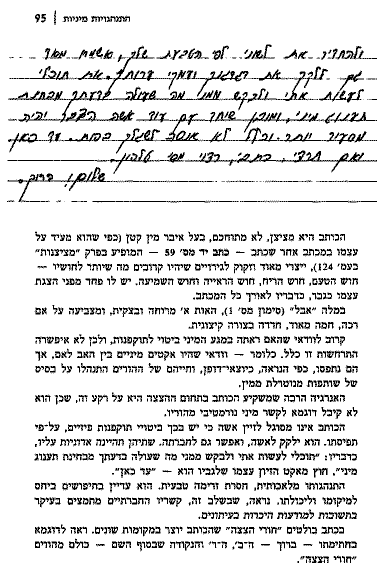 התנהגויות מיניות | 95
ולהחדיר את לשוני לפי הטבעת שלך, אשמח מאד
גם ללקק את דגדגנך ועמקי ערותך. את תוכלי
לעשות אתי ולבקש ממני מה שעולה בדעתך מבחינת
תענוג מיני, ומובן שיחד עם עוד אשה הדבר יהיה
מסעיר יותר. ובעל לא אוכל לשגלך בכוס. עד כאן
ואם תרצי, כתבי, רצוי מס' טלפון.
שלום! ברוך.
הכותב הוא מציצן, לא מתוחכם, בעל איבר מין קטן (כפי שהוא מעיד על
עצמו במכתב אחר שכתב — כתב יד מס' 59 — המופיע בפרק "מציצנות"
בעמ' 124), ייצרי מאוד וזקוק לגירויים שיהיו קרובים מה שיותר לחושיו —
חוש הטעם, חוש הריח, חוש הראייה וחוש השמיעה. יש לו פחד מפני הצגת
עצמו כגבר, כדבריו לאורך כל המכתב.
במלה "אבל" (סימון מס' 1), האות א' מרוחה ובצקית, ומצביעה על אם
רכה, חמה מאוד, חדדה בצורה קיצונית.
קרוב לוודאי שהאם ראתה במגע המיני ביטוי לתוקפנות, ולכן לא איפשרה
התרחשות זו כלל. כלומר — וודאי שהיו אקטים מיניים בין האב לאם, אך
הם נתפסו, כפי הנראה, כיוצאי־דופן, וחייהם של ההורים התנהלו על בסיס
של שותפות מנוטרלת ממין.
האנרגיה הרבה שמשקיע הכותב בתחום ההצצה היא על רקע זה, שכן הוא
לא קיבל דוגמא לקשר מיני נורמטיבי מהוריו.
הכותב אינו מסוגל לזיין אשה כי יש בכך ביטויי תוקפנות פיזיים, על־פי
תפיסתו. הוא ילקק לאשה, ואפשר גם לחברתה. שתיהן תהיינה אדוניות עליו,
כדבריו: "תוכלי לעשות אתי ולבקש ממני מה שעולה בדעתך מבחינת תענוג
מיני", חוץ מאקט הזיון עצמו שלגביו הוא — "עד כאן".
התנהגותו מלאכותית, חסרת זרימה טבעית. הוא עדיין בחיפושים ביחס
למיקומו וליכולתו. נראה, שבשלב זה, קשריו החברתיים מתמצים בעיקר
בתשובות למודעות היכרות בעיתונים.
בכתב בולטים "חורי הצצה" שהכותב יוצר במקומות שונים. ראה לדוגמא
בחתימתו — ברוך — ה־ב', ה־ו' והנקודה שבסוף השם — כולם מהווים
"חורי הצצה".